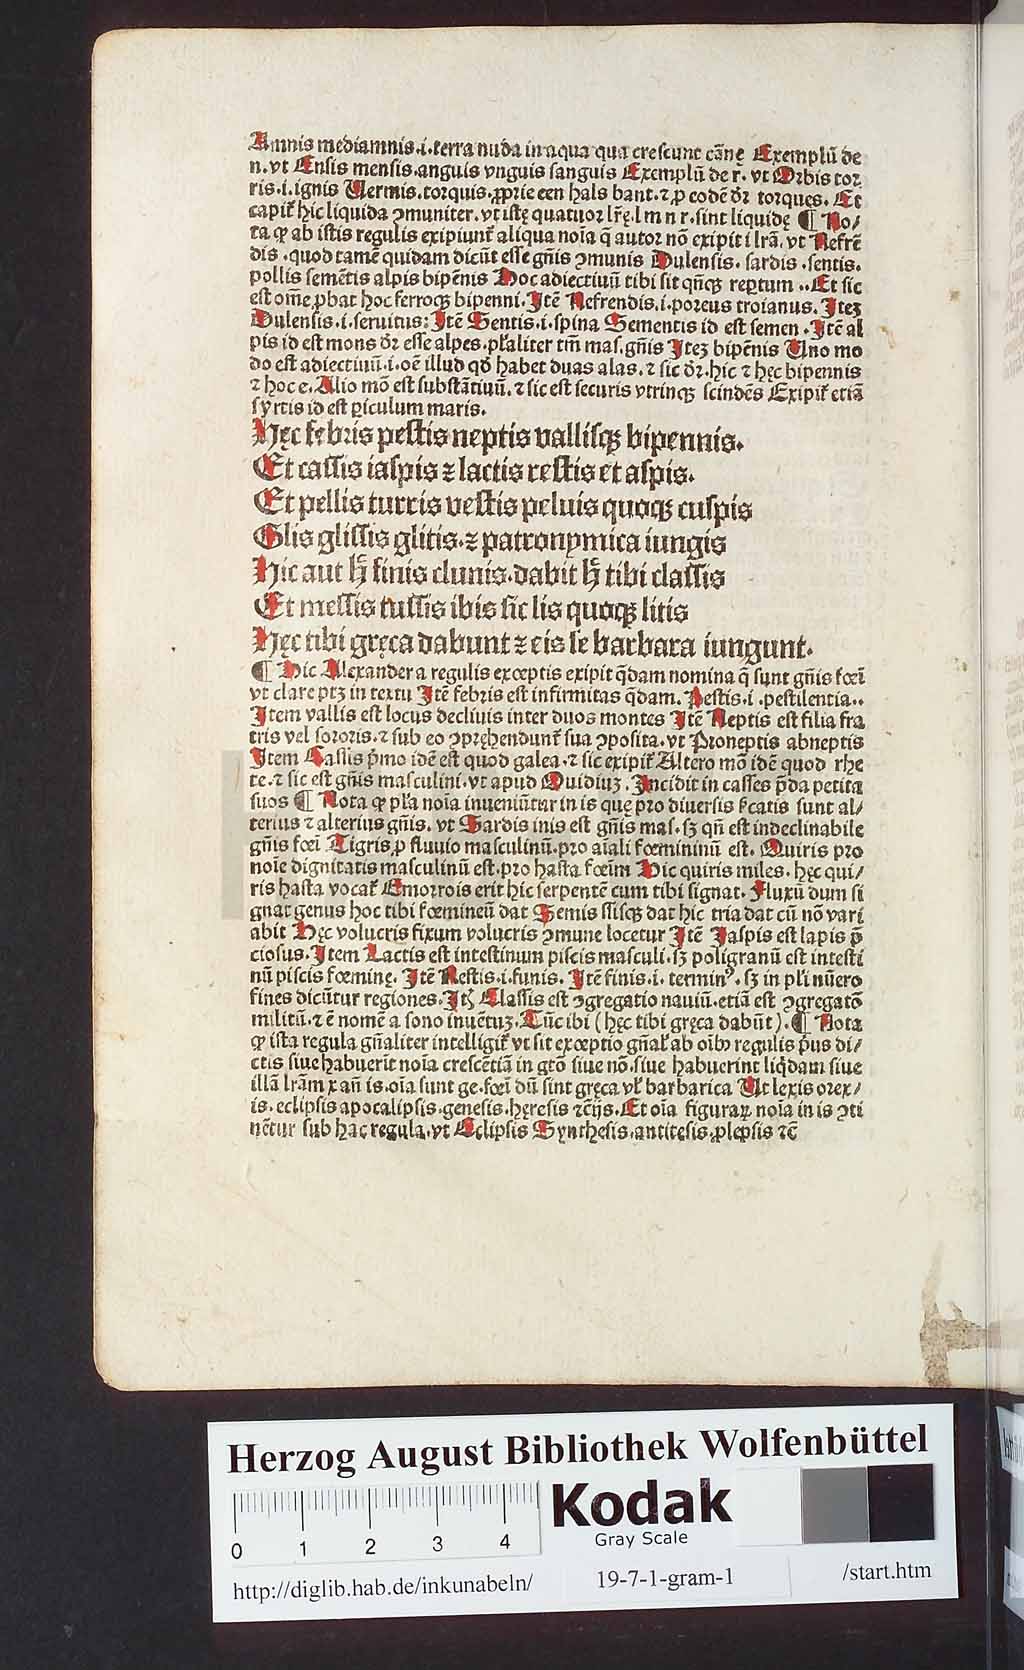 Amnis mediamnis.i.terra nuda in aqua qua crescunt cāne Exemplū de
n.vt Ensis mensis.anguis vnguis sanguis Exemplū de r. vt Orbis tor
ris.i.ignis Vermis.torquis.ꝓprie een hals bant.⁊ ꝓ eodē dr̄ torques. Et
capit᷑ hic liquida ꝯmuniter.vt istę quatuor lr̄ę.l m n r.sint liquidę ¶ No/
ta ꝙ ab istis regulis exipiunt᷑ aliqua noīa q̄ autor nō exipit i lrā.vt Nefrē
dis.quod tamē quidam dicūt esse gn̄is ꝯmunis Dulensis.sardis.sentis.
pollis semētis alpis bipēnis Hoc adiectiuū tibi sit qn̄qꝫ reptum..Et sic
est om̄e ꝓbat hoc ferroqꝫ bipenni.Itē Nefrendis.i.porcus troianus.Iteꝫ
Dulensis.i.seruitus: Itē Sentis.i.spina Sementis id est semen.Itē al
pis id est mons dr̄ esse alpes.pl̄aliter tm̄ mas.gn̄is Iteꝫ bipēnis Uno mo
do est adiectiuū.i.oē illud qd̄ habet duas alas.⁊ sic dr̄.hic ⁊ hęc bipennis
⁊ hoc e.Alio mō est substātiuū.⁊ sic est securis vtrinqꝫ scindēs Exipit᷑ etiā
syrtis id est ꝑiculum maris.
Hęc febris pestis neptis vallisqꝫ bipennis.
Et cassis iaspis ⁊ lactis restis et aspis.
Et pellis turris vestis peluis quoqꝫ cuspis
Glis glissis glitis.⁊ patronymica iungis
Hic aut h̄ finis clunis.dabit h̄ tibi classis
Et messis tussis ibis sic lis quoqꝫ litis
Hęc tibi gręca dabunt ⁊ eis se barbara iungunt.
¶ Hic Alexander a regulis exceptis exipit q̄dam nomina q̄ sunt gn̄is fœī
vt clare ptꝫ in textu Itē febris est infirmitas q̄dam.Pestis.i.pestilentia..
Item vallis est locus decliuis inter duos montes Itē Neptis est filia fra
tris vel sororis.⁊ sub eo ꝯpręhendunt᷑ sua ꝯposita.vt Proneptis abneptis
Item Cassis p̄mo idē est quod galea.⁊ sic exipit᷑ Altero mō idē quod rhe
te.⁊ sic est gn̄is masculini.vt apud Ouidiuꝫ.Incidit in casses p̄da petita
suos ¶ Nota ꝙ pl̄a noīa inueniūtur in is quę pro diuersis s̄catis sunt al/
terius ⁊ alterius gn̄is.vt Sardis inis est gn̄is mas.sꝫ qn̄ est indeclinabile
gn̄is fœī Tigris ꝓ fluuio masculinū.pro aīali fœmininū est. Quiris pro
noīe dignitatis masculinū est.pro hasta fœīm Hic quiris miles.hęc qui/
ris hasta vocat᷑ Emorrois erit hic serpentē cum tibi signat.Fluxū dum si
gnat genus hoc tibi fœmineū dat Semis ssisqꝫ dat hic tria dat cū nō vari
abit Hęc volucris fixum volucris ꝯmune locetur Itē Iaspis est lapis p̄
ciosus.Item Lactis est intestinum piscis masculi.sꝫ poligranū est intesti
nū piscis fœminę.Itē Restis.i.funis.Itē finis.i.terminꝰ.sꝫ in pl̄i nūero
fines dicūtur regiones.Itꝫ Classis est ꝯgregatio nauiū.etiā est ꝯgregatō
militū.⁊ ē nomē a sono inuētuꝫ.Tūc ibi (hęc tibi gręca dabūt).¶ Nota
ꝙ ista regula gn̄aliter intelligit᷑ vt sit exceptio gn̄al᷑ ab oībꝫ regulis p̄us di/
ctis siue habuerīt noīa crescētiā in gtō siue nō.siue habuerint liq̄dam siue
illā lrām x an̄ is.oīa sunt ge.fœī dū sint gręca vl᷑ barbarica Ut lexis orex/
is.eclipsis apocalipsis.genesis.hęresis ⁊cīs.Et oīa figuraꝝ noīa in is ꝯti
nētur sub hac regula.vt Eclipsis Synthesis.antitesis.ꝓlepsis ⁊c̄
Herzog August Bibliothek Wolfenbüttel
0 1 2 3 4
Kodak
Gray Scale
http://diglib.hab.de/inkunabeln/ 19-7-1-gram-1 /start.htm